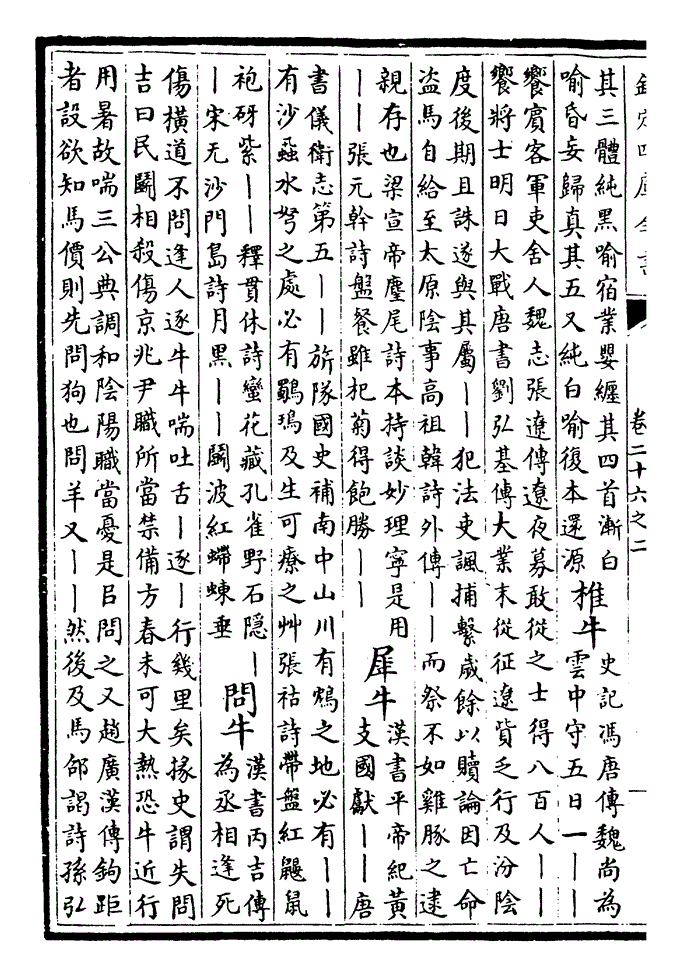 欽定四庫全書
卷二十六之二
其三體純黑喻宿業嬰纏其四首漸白
喻昏妄歸真其五又純白喻復本還源
椎牛
史記馮唐傳魏尚為
雲中守五日一丨丨
饗賓客軍吏舍人魏志張遼傳遼夜募敢從之士得八百人丨丨
饗將士明日大戰唐書劉弘基傳大業末從征遼貲乏行及汾陰
度後期且誅遂與其屬丨丨犯法吏諷捕繫歲餘以贖論因亡命
盜馬自給至太原陰事高祖韓詩外傳丨丨而祭不如雞豚之逮
親存也梁宣帝麈尾詩本持談妙理寧是用
丨丨張元幹詩盤餐雖杞菊得飽勝丨丨
犀牛
漢書平帝紀黃
支國獻丨丨唐
書儀衛志第五丨丨旂隊國史補南中山川有鴆之地必有丨丨
有沙蝨水弩之處必有鸀鳿及生可療之艸張祜詩帶盤紅鼹鼠
袍砑紫丨丨釋貫休詩蠻花藏孔雀野石隱丨
丨宋无沙門島詩月黑丨丨鬭波紅蝃蝀垂
問牛
漢書丙吉傳
為丞相逢死
傷橫道不問逢人逐牛牛喘吐舌丨逐丨行幾里矣掾史謂失問
吉曰民鬭相殺傷京兆尹職所當禁備方春未可大熱恐牛近行
用暑故喘三公典調和陰陽職當憂是㠯問之又趙廣漢傳鉤距
者設欲知馬價則先問狗也問羊又丨丨然後及馬邵謁詩孫弘